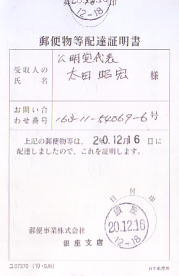 12-18
郵便物等配達証明書
受取人の氏名
公明党代表
太田昭宏 様
お問い合わせ番号
162-11-64069-6号
上記の郵便物等は、20.12.16日に
配達しましたので、これを証明します。
日附印
銀座
20.12.16
12-18
郵便事業株式会社
銀座支店